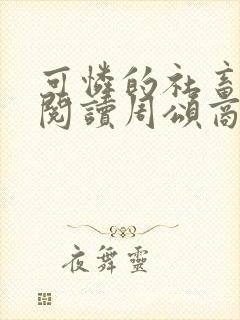 可憐的社畜
閱讀周頌商
夜舞靈